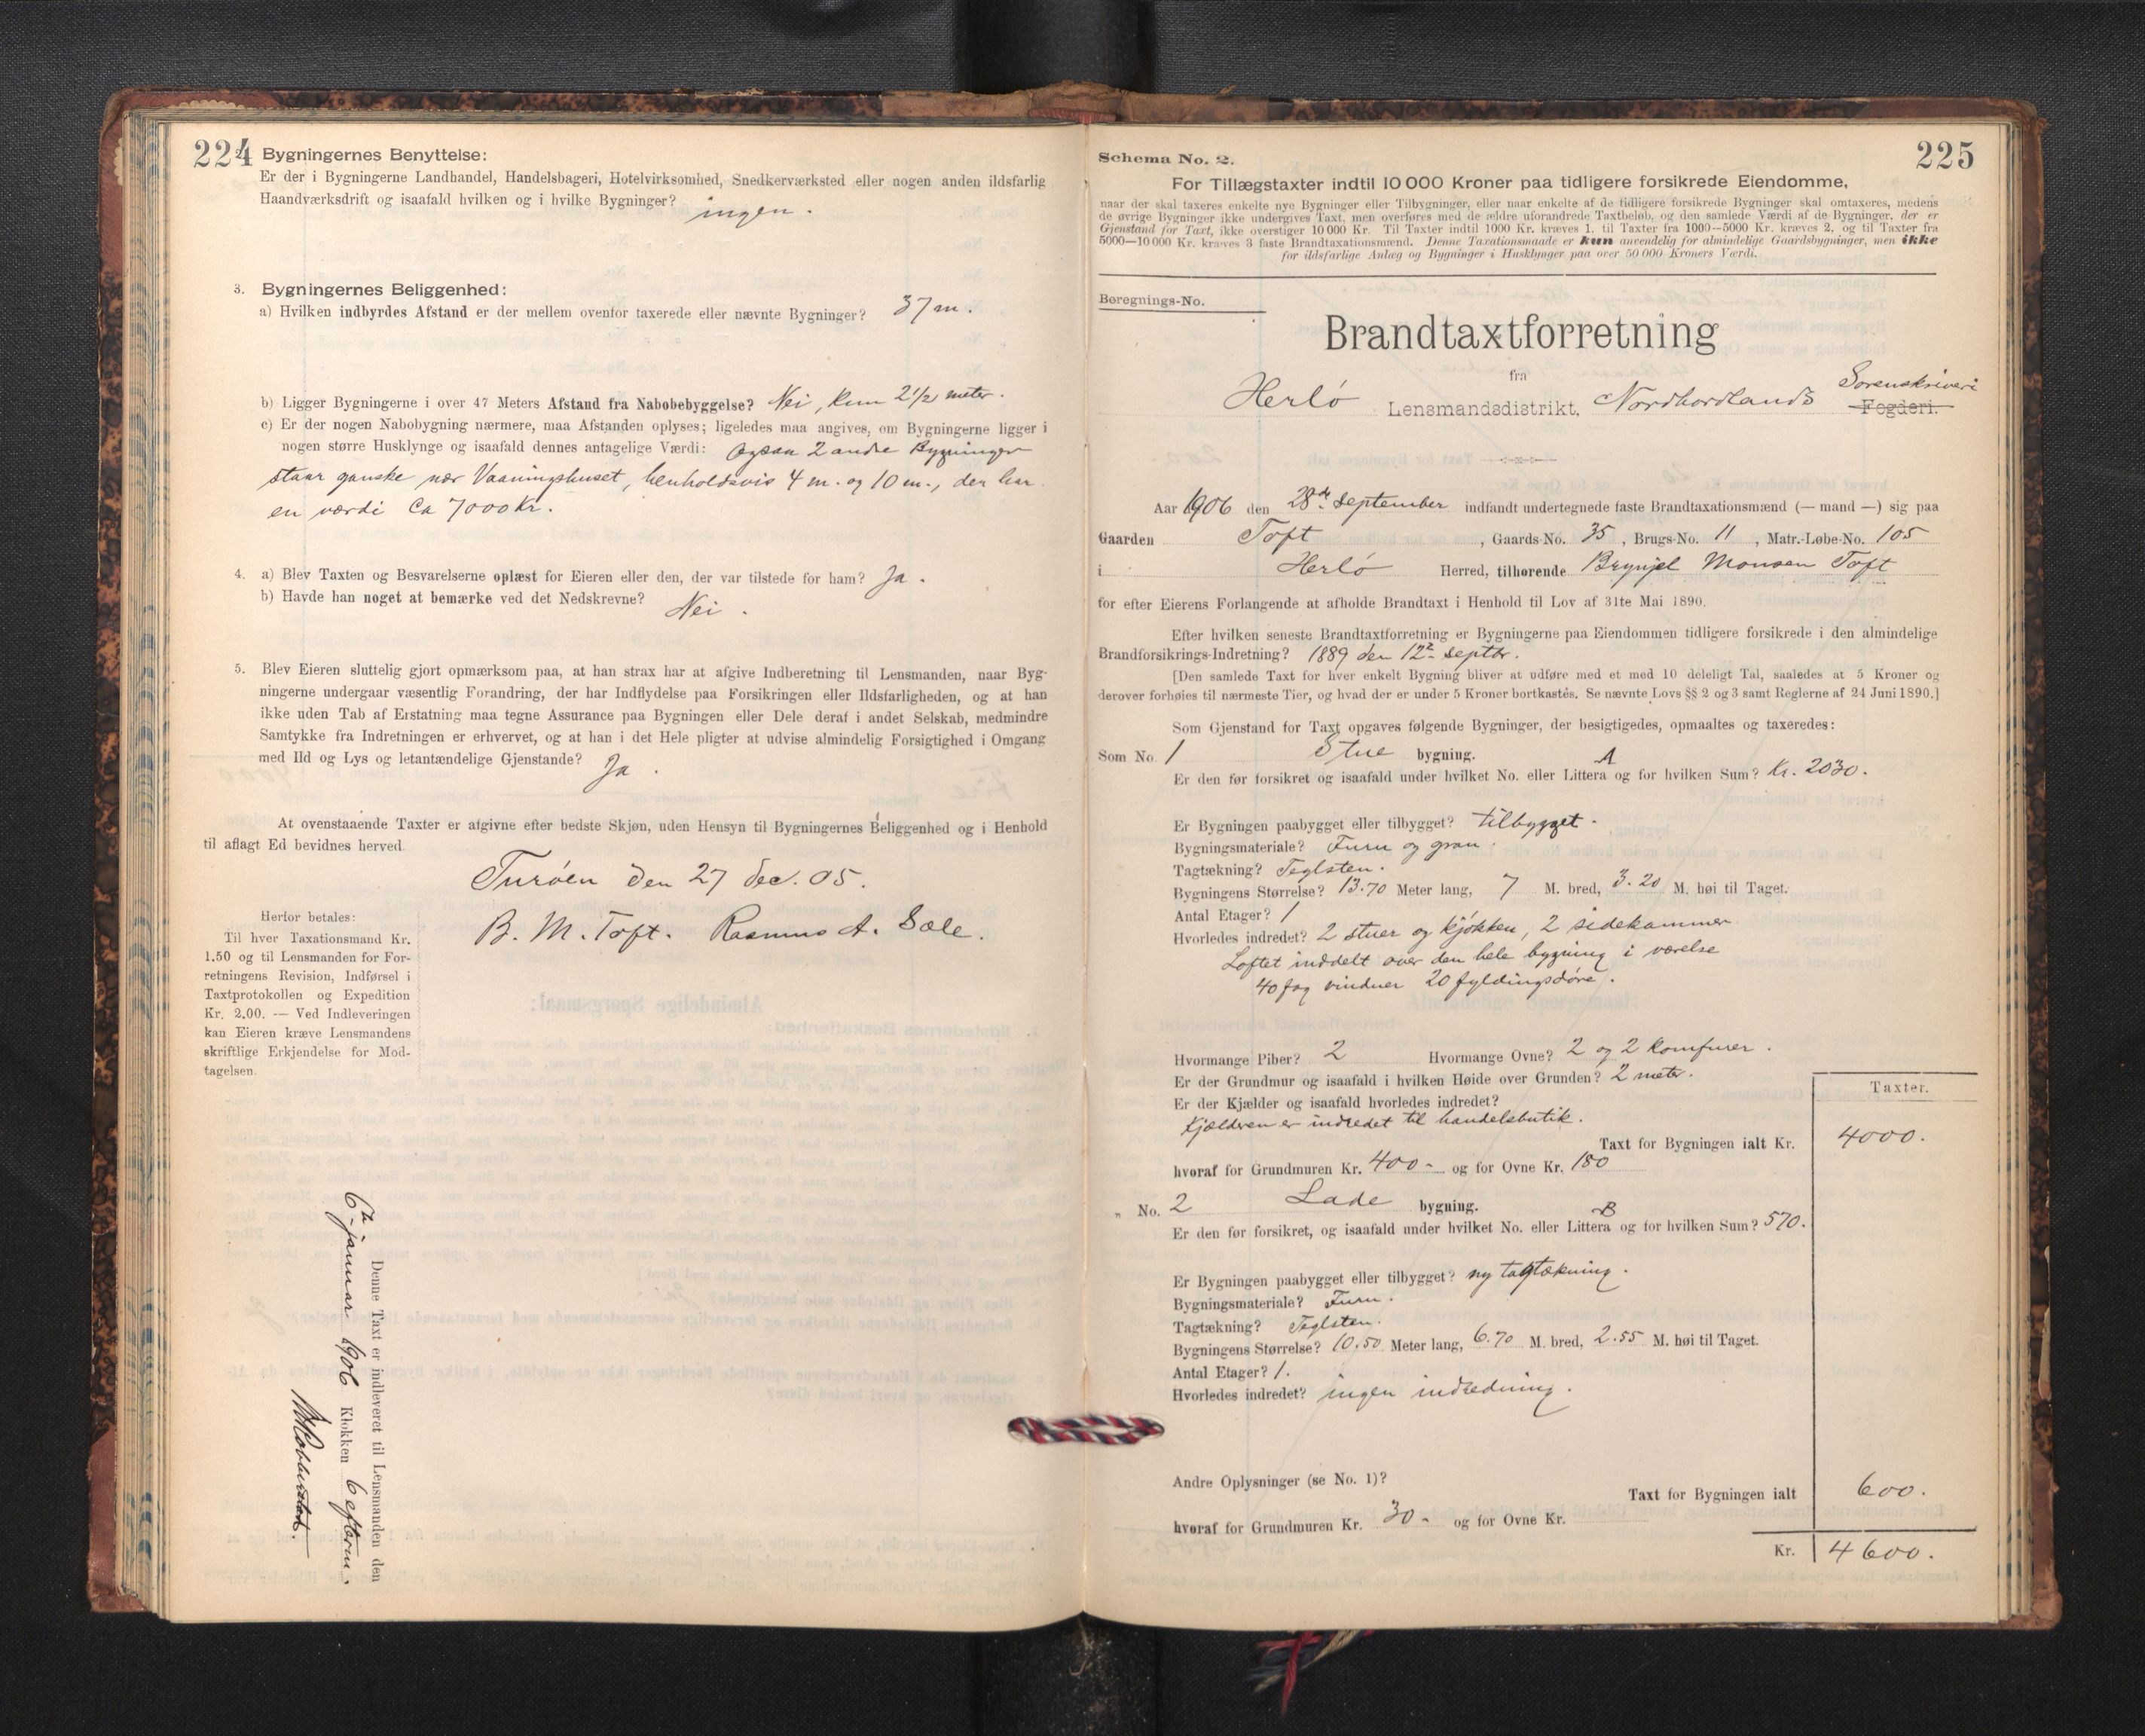 224
Bygningernes Benyttelse:
Er der i Bygningerne Landhandel, Handelsbageri, Hotelvirksomhed, Snedkerværksted eller nogen anden ildsfarlig
Haandværksdrift og isaafald hvilken og i hvilke Bygninger? ingen.
3. Bygningernes Beliggenhed:
a) Hvilken indbyrdes Afstand er der mellem ovenfor taxerede eller nævnte Bygninger? 37 m.
b) Ligger Bygningerne i over 47 Meters Afstand fra Nabobebyggelse? Nei, kun 2 1/2 meter.
c) Er der nogen Nabobygning nærmere, maa Afstanden oplyses; ligeledes maa angives, om Bygningerne ligger i
nogen større Husklynge og isaafald dennes antagelige Værdi: Ogsaa 2 andre Bygninger
staar ganske nær Vaaningshuset, henholdsvis 4 m. og 10 m., der har
en værdi Ca 7000 Kr.
4. a) Blev Taxten og Besvarelserne oplæst for Eieren eller den, der var tilstede for ham? Ja.
b) Havde han noget at bemærke ved det Nedskrevne? Nei.
5. Blev Eieren sluttelig gjort opmærksom paa, at han strax har at afgive Indberetning til Lensmanden, naar Byg-
ningerne undergaar væsentlig Forandring, der har Indflydelse paa Forsikringen eller Ildsfarligheden, og at han
ikke uden Tab af Erstatning maa tegne Assurance paa Bygningen eller Dele deraf i andet Selskab, medmindre
Samtykke fra Indretningen er erhvervet, og at han i det Hele pligter at udvise almindelig Forsigtighed i Omgang
med Ild og Lys og letantændelige Gjenstande? Ja.
At ovenstaaende Taxter er afgivne efter bedste Skjøn, uden Hensyn til Bygningernes Beliggenhed og i Henhold
til aflagt Ed bevidnes herved.
Turöen den 27 dec. 05.
B. M. Toft. Rasmus A. Sæle.
Herfor betales:
Til hver Taxationsmand Kr.
1.50 og til Lensmanden for For-
retningens Revision, Indførsel i
Taxtprotokollen og Expedition
Kr. 2.00. — Ved Indleveringen
kan Eieren kræve Lensmandens
skriftlige Erkjendelse for Mod-
tagelsen.
Denne Taxt er indleveret til Lensmanden den
6te januar 1906 Klokken 6 efterm.
225
Schema No. 2.
For Tillægstaxter indtil 10 000 Kroner paa tidligere forsikrede Eiendomme,
naar der skal taxeres enkelte nye Bygninger eller Tilbygninger, eller naar enkelte af de tidligere forsikrede Bygninger skal omtaxeres, medens
de øvrige Bygninger ikke undergives Taxt, men overføres med de ældre uforandrede Taxtbeløb, og den samlede Værdi af de Bygninger, der er
Gjenstand for Taxt, ikke overstiger 10 000 Kr. Til Taxter indtil 1000 Kr. kræves 1, til Taxter fra 1000—5000 Kr. kræves 2, og til Taxter fra
5000—10 000 Kr. kræves 3 faste Brandtaxationsmænd. Denne Taxationsmaade er kun anvendelig for almindelige Gaardsbygninger, men ikke
for ildsfarlige Anlæg og Bygninger i Husklynger paa over 50 000 Kroners Værdi.
Beregnings-No.
Brandtaxtforretning
fra
Herlö Lensmandsdistrikt, Nordhordlands Sorenskriveri Fogderi.
Aar 1906 den 28de September indfandt undertegnede faste Brandtaxationsmænd (— mand —) sig paa
Gaarden Toft, Gaards-No. 35, Brugs-No. 11, Matr.-Løbe-No. 105
i Herlö Herred, tilhørende Brynjel Monsen Toft
for efter Eierens Forlangende at afholde Brandtaxt i Henhold til Lov af 31te Mai 1890.
Efter hvilken seneste Brandtaxtforretning er Bygningerne paa Eiendommen tidligere forsikrede i den almindelige
Brandforsikrings-Indretning? 1889 den 12te septbr.
[Den samlede Taxt for hver enkelt Bygning bliver at udføre med et med 10 deleligt Tal, saaledes at 5 Kroner og
derover forhøies til nærmeste Tier, og hvad der er under 5 Kroner bortkastes. Se nævnte Lovs §§ 2 og 3 samt Reglerne af 24 Juni 1890.]
Som Gjenstand for Taxt opgaves følgende Bygninger, der besigtigedes, opmaaltes og taxeredes:
Som No. 1 Stue bygning.
Er den før forsikret og isaafald under hvilket No. eller Littera A og for hvilken Sum? Kr. 2030.
Er Bygningen paabygget eller tilbygget? tilbygget.
Bygningsmateriale? Furu og gran.
Tagtækning? Teglsten.
Bygningens Størrelse? 13.70 Meter lang, 7 M. bred, 3.20 M. høi til Taget.
Antal Etager? 1
Hvorledes indredet? 2 stuer og kjökken, 2 sidekammer
Loftet inddelt over den hele bygning i værelse
40 fag vinduer 20 fyldingsdøre.
Hvormange Piber? 2 Hvormange Ovne? 2 og 2 komfurer.
Er der Grundmur og isaafald i hvilken Høide over Grunden? 2 meter.
Er der Kjælder og isaafald hvorledes indredet?
Kjælderen er indredet til handelsbutik.
Taxter.
Taxt for Bygningen ialt Kr. 4000.
hvoraf for Grundmuren Kr. 400- og for Ovne Kr. 180
" No. 2 Lade bygning.
Er den før forsikret, og isaafald under hvilket No. eller Littera B og for hvilken Sum? 570.
Er Bygningen paabygget eller tilbygget? ny tagtækning.
Bygningsmateriale? Furu.
Tagtækning? Teglsten.
Bygningens Størrelse? 10.50 Meter lang, 6.70 M. bred, 2.55 M. høi til Taget.
Antal Etager? 1.
Hvorledes indredet? ingen indredning.
Andre Oplysninger (se No. 1)?
Taxt for Bygningen ialt 600.
hvoraf for Grundmuren Kr. 30- og for Ovne Kr.
Kr. 4600.